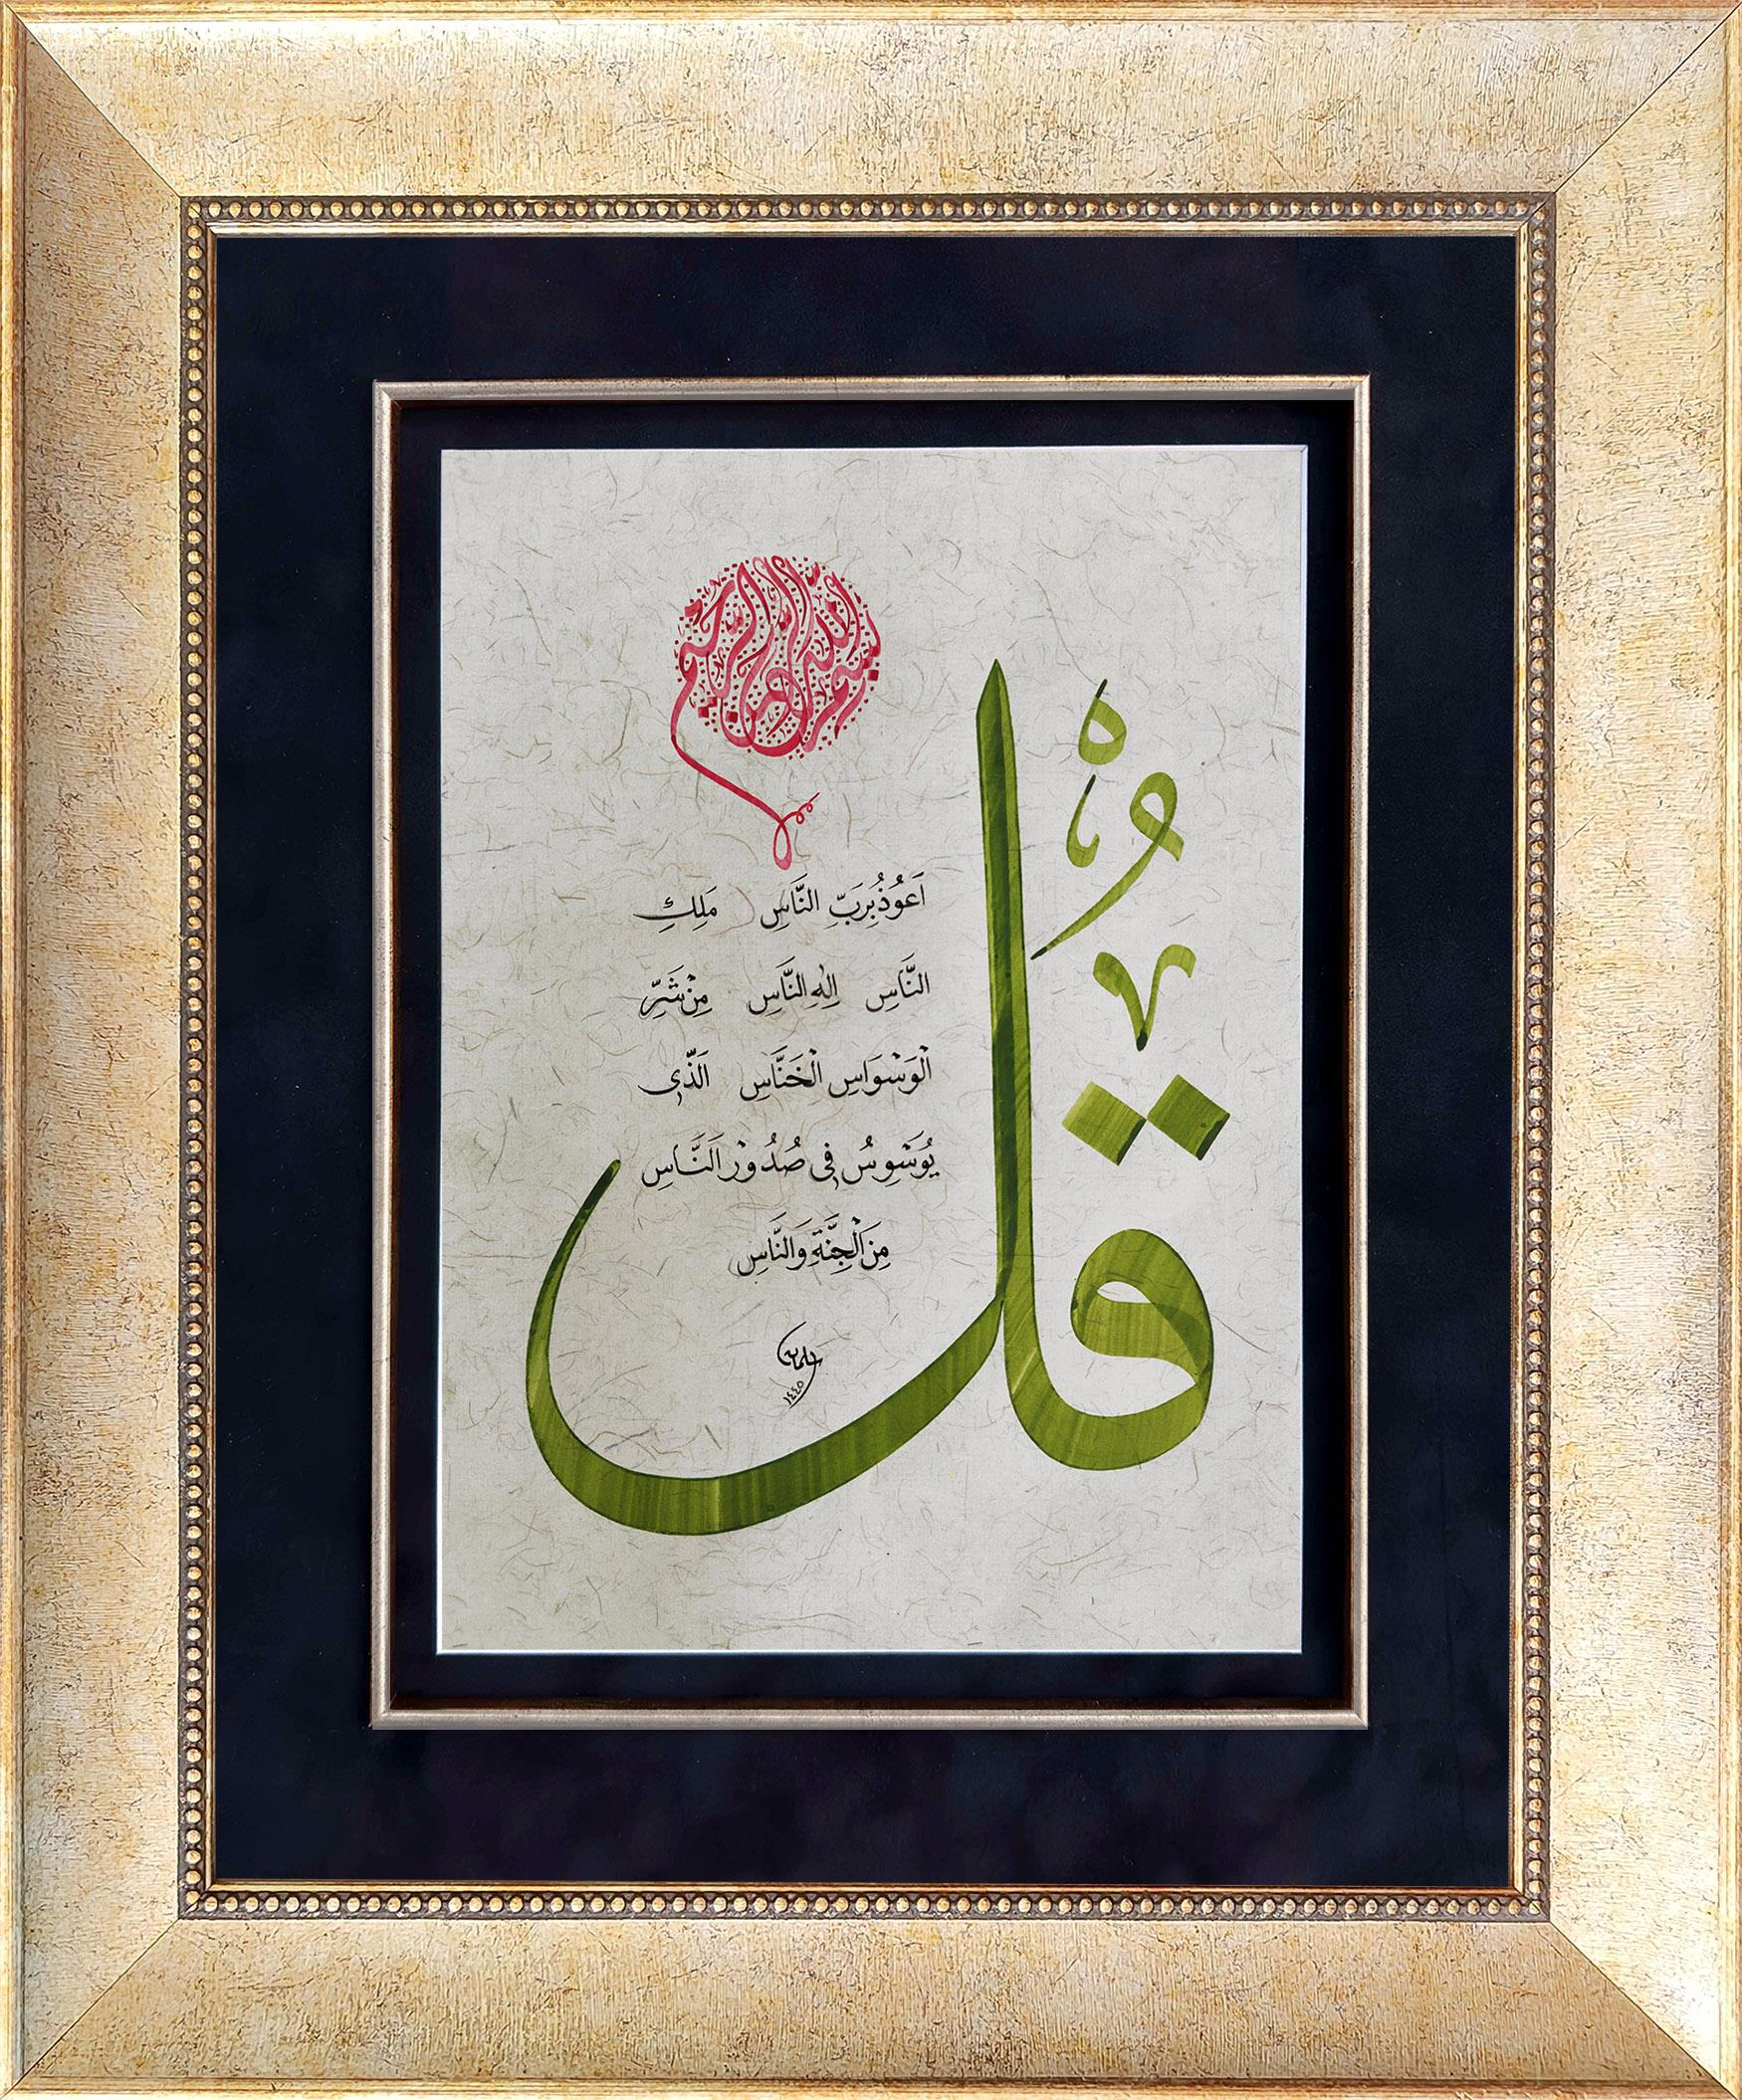 بسم الله الرحمن الرحيم
قُلْ
اَعُوذُ بِرَبِّ النَّاسِ مَلِكِ
النَّاسِ اِلٰهِ النَّاسِ مِنْ شَرِّ
الْوَسْوَاسِ الْخَنَّاسِ اَلَّذٖى
يُوَسْوِسُ فٖى صُدُوْرِ النَّاسِ
مِنَ الْجِنَّةِ وَالنَّاسِ
١٤٤٥